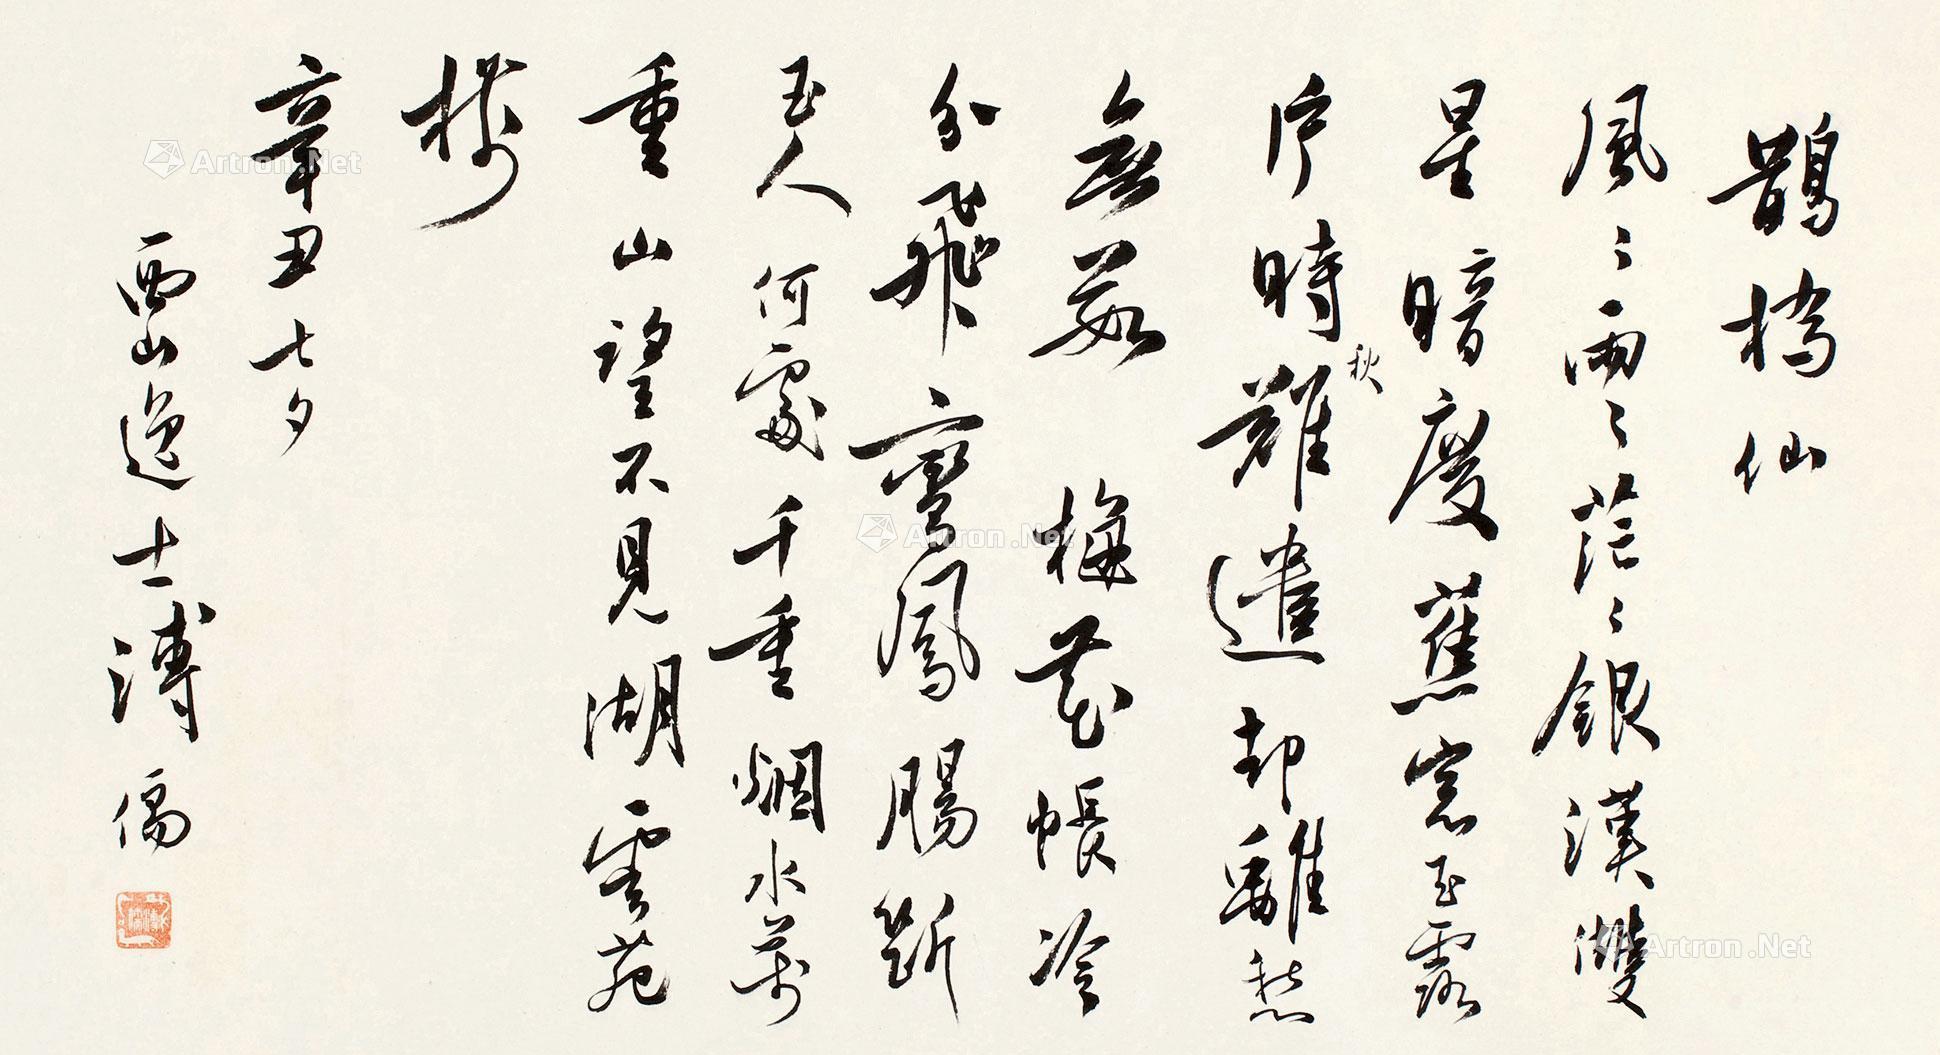 鵲橋仙
風〻雨〻茫〻銀漢雙
星暗度蕉窓玉露
片時秋難遣却離愁
無數梅花帳冷
分飛鸞鳳腸斷
玉人何處千重烟水萬
重山望不見湖雲苑
樹
辛丑七夕
西山逸士溥儒
Artron.Net
Artron.Net
Artron.Net